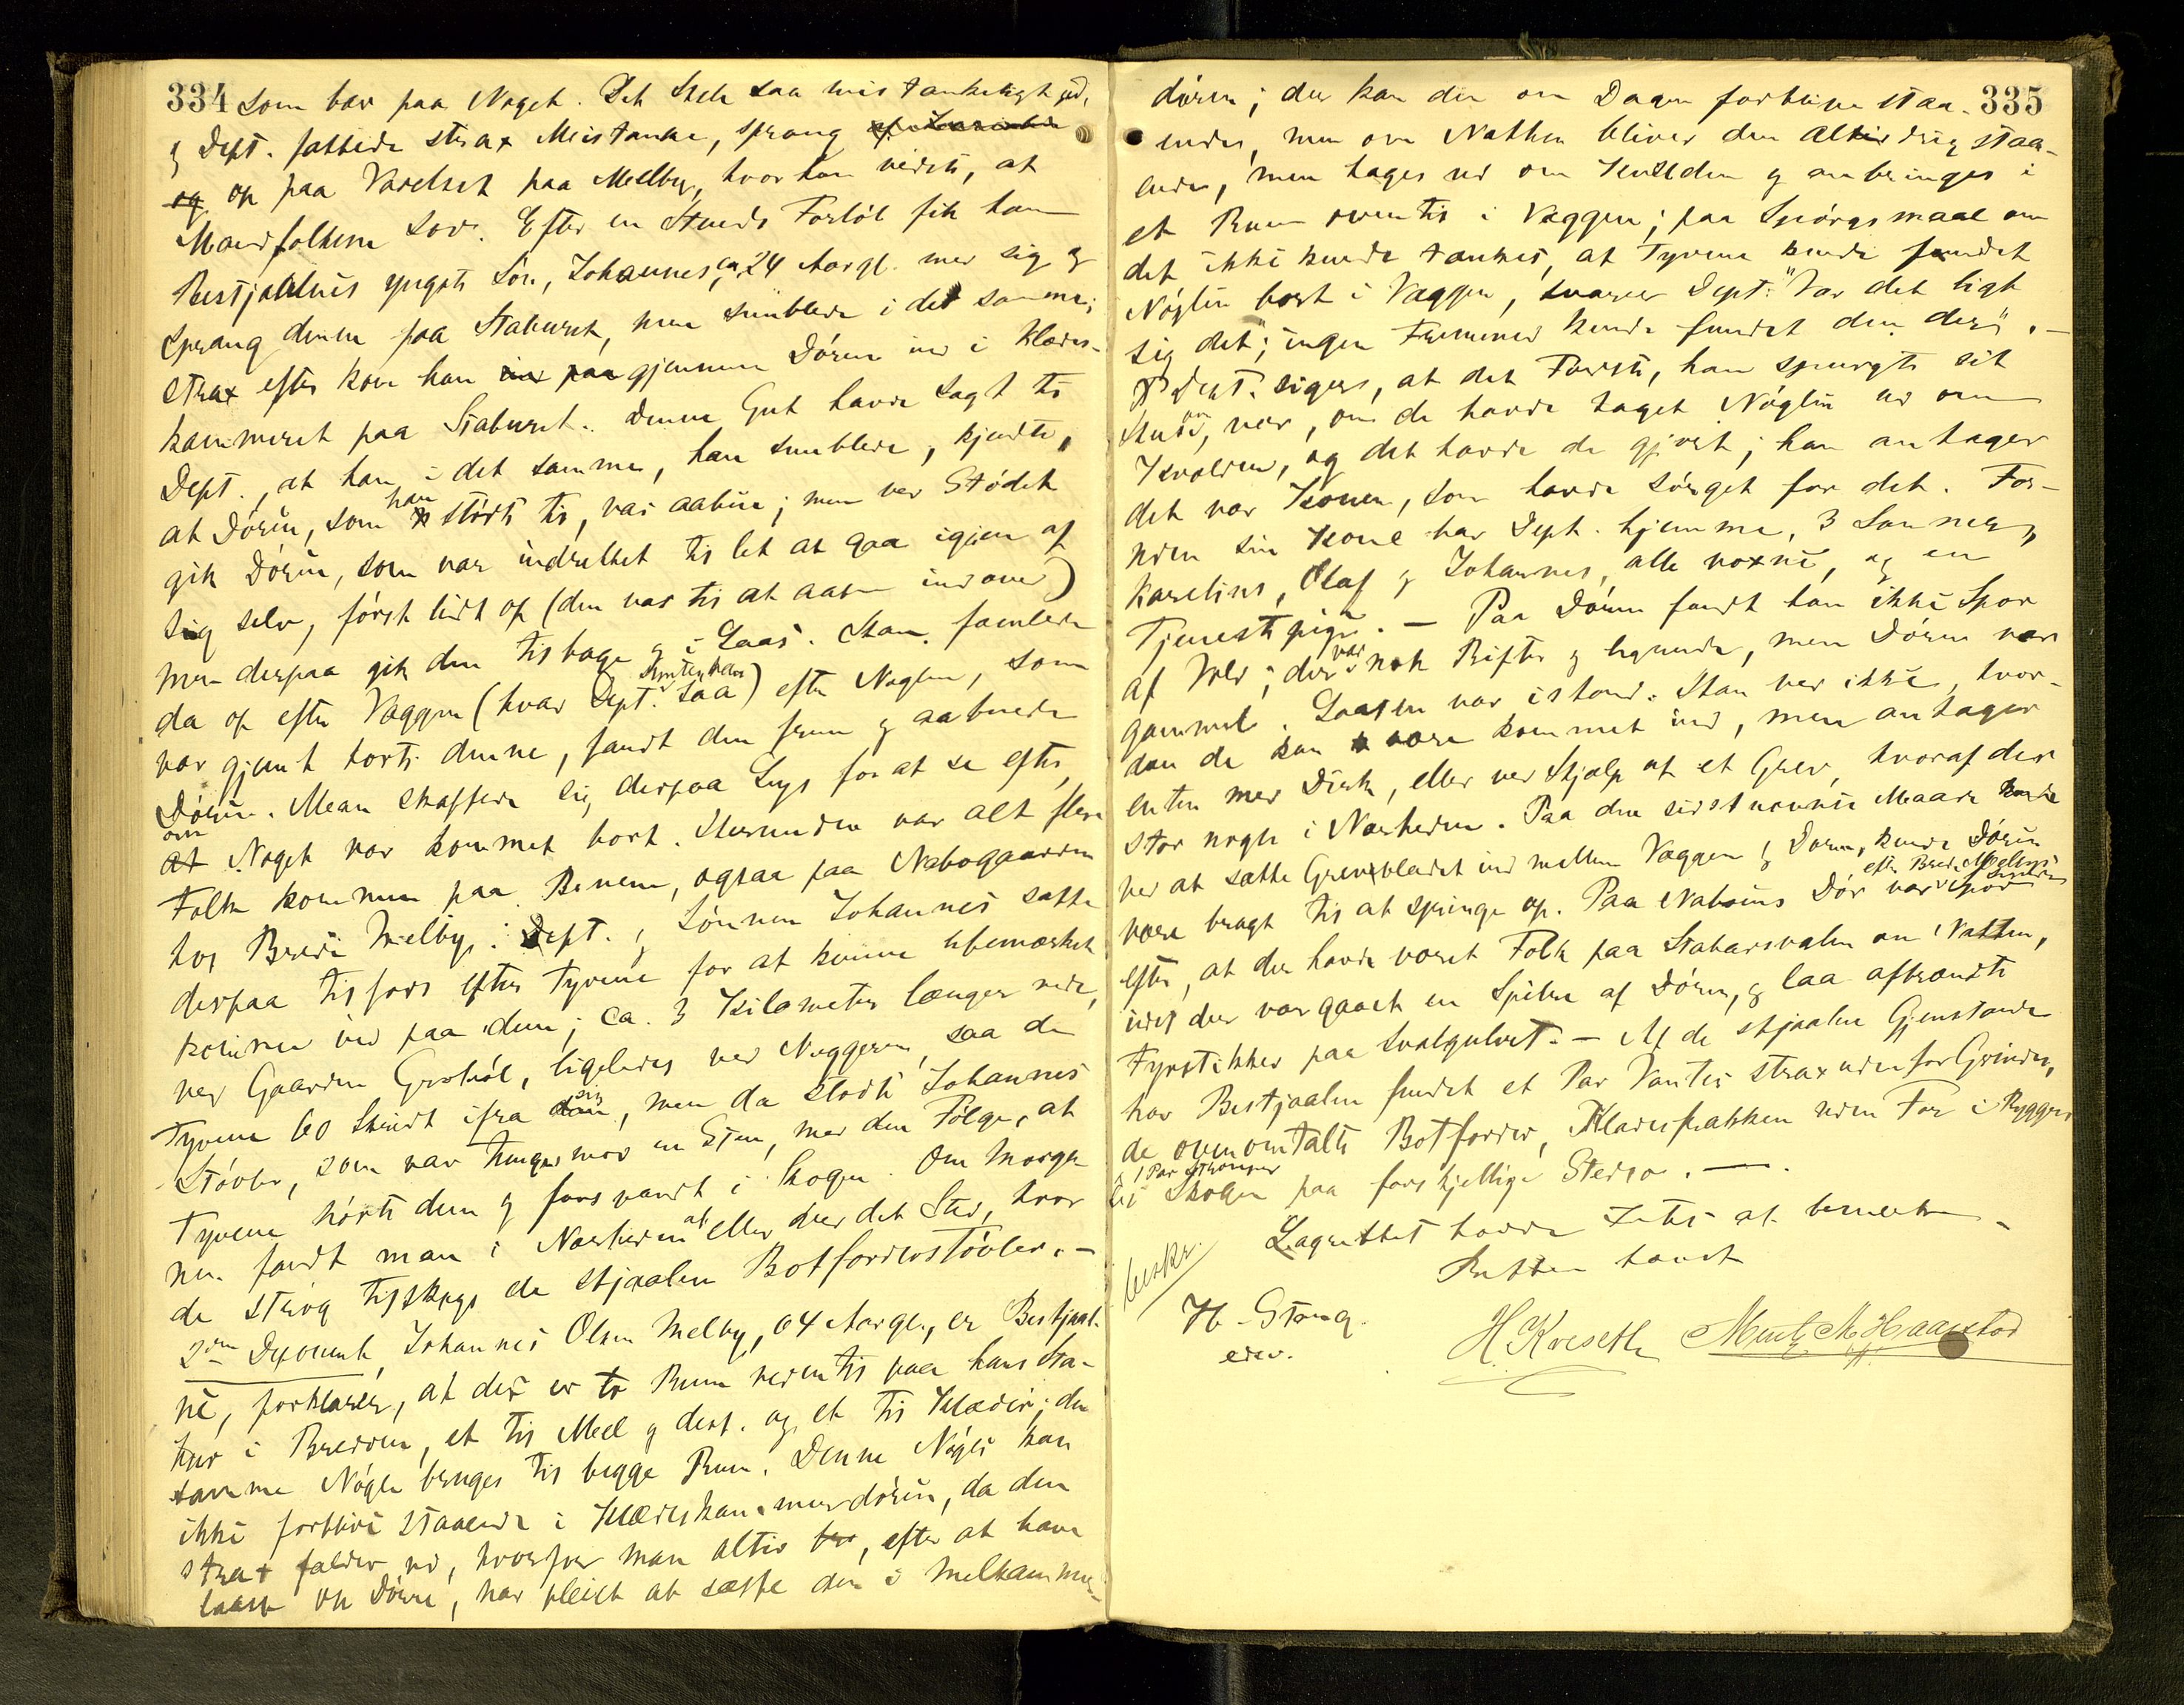 334 som bar paa Noget. Det Hele saa mistænkeligt ud,
og Dept. fattede strax Mistanke, sprang
og op paa Værelset paa Melby, hvor han vidste, at
Mandfolkene sov. Efter en Stunds Forløb fik han
Bestjaalnes yngste Søn, Johannes, ca 24 Aar gl. med sig og
sprang denne paa Staburet, men snublede i det samme;
strax efter kom han ind paa gjennem Døren ind i Klædes-
kammeret paa Staburet. Denne Gut havde sagt til
Dept., at han i det samme, han snublede, kjendte,
at Døren, som han stødte til, var aaben; men ved Stødet
gik Døren, som var indrettet til let at gaa igjen af
sig selv, først lidt op (den var til at aabne indover)
men derpaa gik den tilbage og i Laas. Han famlede
da op efter Væggen (hvad Dept. saa) efter Nøglen, som
var gjemt borte denne, fandt den frem og aabnede
Døren. Man skaffede sig derpaa Lys for at se efter,
om
at Noget var kommet bort. Herunder var alt flere
Folk kommen paa Benene, ogsaa paa Nabogaarden
hos Brede Melby. Dept. og Sønnen Johannes satte
derpaa tilfods efter Tyvene for at kunne ubemærket
komme ind paa dem; ca. 3 Kilometer længer nede,
ved Gaarden Grøthøl, ligeledes ved Væggeren, saa de
Tyvene 60 Skridt ifra sig, men da stødte Johannes
Støvler, som var tunge, mod en Sten, med den Følge, at
Tyvene hørte dem og forsvandt i Skogen. Om Morge-
nen fandt man i Nærheden af eller der det Sted, hvor
de strøg tilskogs de stjaalen Botforderstøvler. —
2den Deponent, Johannes Olsen Melby, 64 Aar gl., er Bestjaal-
ne, forklarer, at der er to Rum nedentil paa hans Sta-
bur i Bredden, et til Mel og desl. og et til Klæder; den
samme Nøgle bruges til begge Rum. Denne Nøgle kan
ikke forblive staaende i Klædeskammerdøren, da den
strax falder ud, hvorfor man altid har, efter at have
laast op Døren, har pleiet at sætte den i Melkammer-
døren; der kan den om Dagen forblive staa- 335
ende, men om Natten bliver den aldrig staa-
ende, men tages ud om Kvelden og anbringes i
et Rum oventil i Væggen; paa Spørgsmaal om
det ikke kunde tænkes, at Tyvene kunde fundet
Nøglen bort i Væggen, svarer Dept: "Var det ligt
sig det; ingen Fremmed kunde fundet den der". —
Dept. siger, at det Første, han spurgte sit
Hus om, var, om de havde taget Nøglen ud om
Kvelden, og det havde de gjort; han antager
det var Konen, som havde sørget for det. For-
uden sin Kone har Dept. hjemme, 3 Sønner,
Karelius, Olaf og Johannes, alle voxne, og en
Tjenestepige. — Paa Døren fandt han ikke Spor
af Vold; der var nok Rifter og lignende, men Døren var
gammel. Laasen var istand. Han ved ikke, hvor-
dan de kan være kommet ind, men antager
enten med Dirk, eller ved Hjælp af et Grev, hvoraf der
stod nogle i Nærheden. Paa den sidstnævnte Maade
ved at sætte Grevebladet ind mellem Væggen og Døren, kunde Døren
efter Brede Melbys Sigende
være bragt til at springe op. Paa Naboens Dør var Spor
efter, at der havde været Folk paa Stabursvalen om Natten,
idet der var gaaet en Spiler af Døren, og laa afbrændte
Fyrstikker paa Svalgulvet. — Af de stjaalne Gjenstande
har Bestjaalen fundet et Par Vanter strax udenfor Grinden,
de ovenomtalte Botforder, Klædesfrakken uden For i Ryggen
1 Par Strømper
i Skogen paa forskjellige Steder. —
Lagrettet havde Intet at bemerke —
Retten hævet
beskr.
H. Stang
edsv.
H. Kveseth Mentz M Haarstad